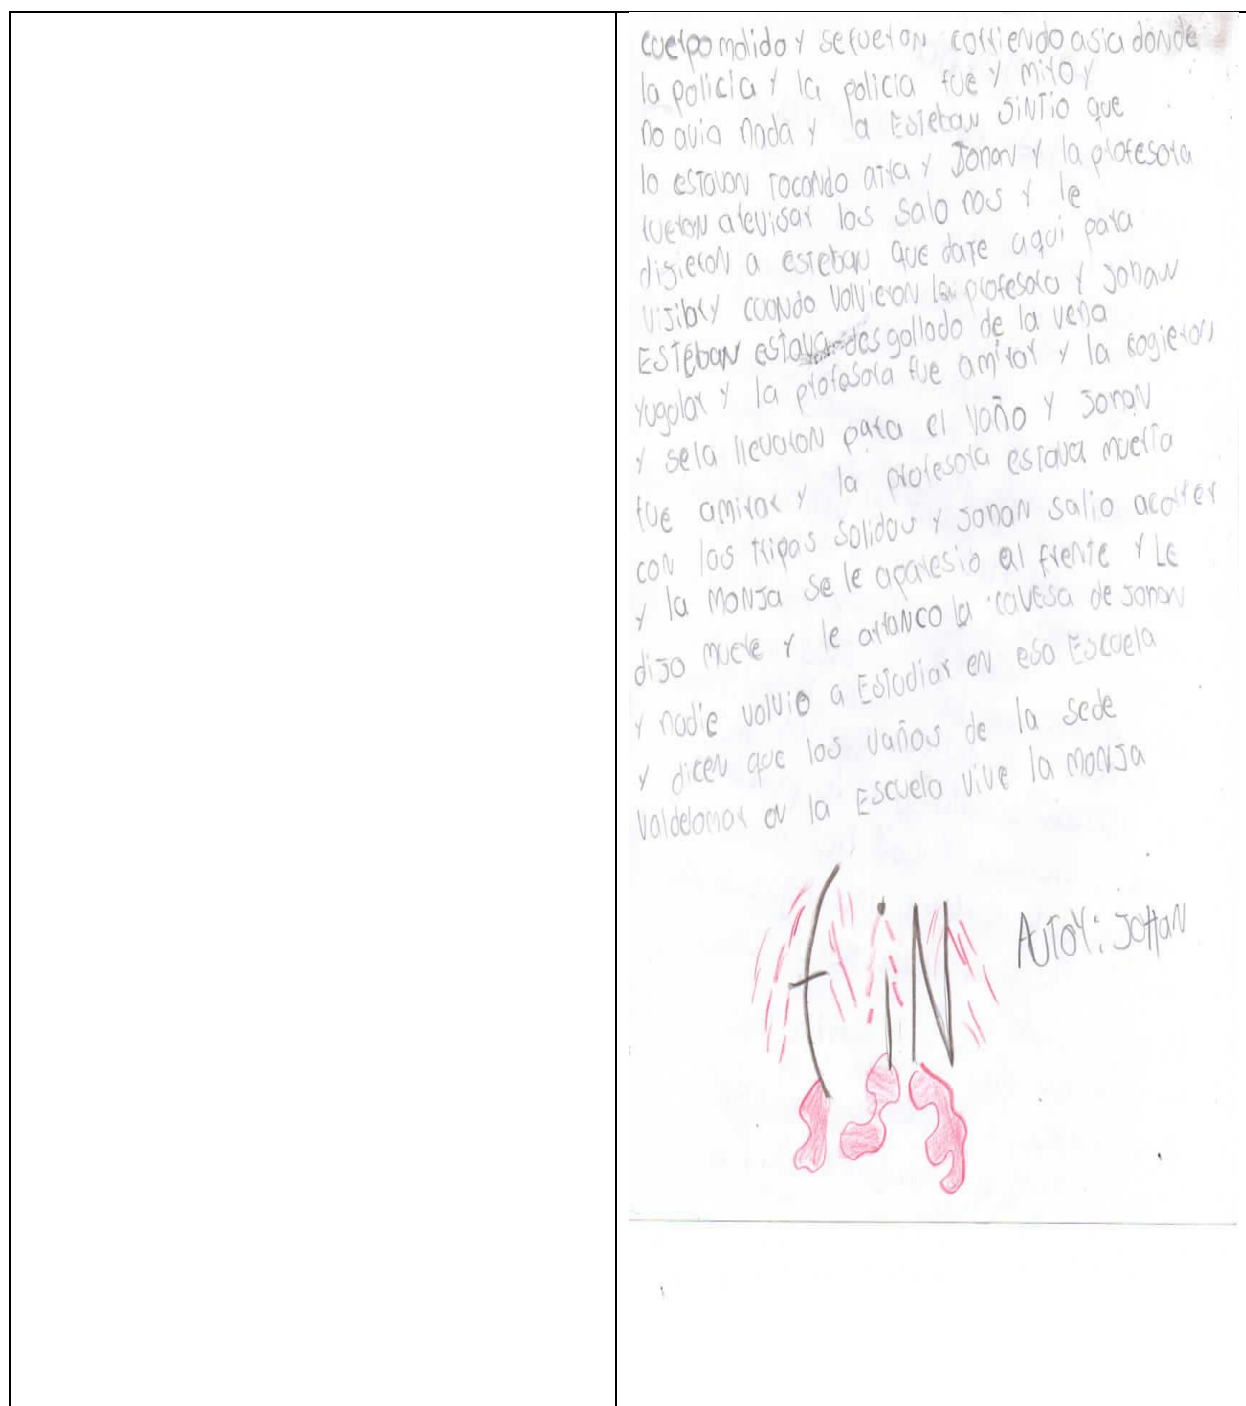 cuerpo molido y se fueron corriendo asia donde
la policia y la policia fue y miro y
no avia nada y a Esteban SiNTio que
lo esTavan TocaNdo atra y Jonan y la profesora
fueron arevisar los salo nos y le
disieron a esteban que date aqui para
visibry cuando volvieron la profesora y Jonan
ESTEban estava desgollado de la vena
yugolar y la profesora fue amirar y la cogieron
y sela llevaron para el vaño y Jonan
fue amirar y la profesora estava muerta
con las tripas salidas y Jonan salio acorrer
y la MONJa se le aparesio al frente y Le
dijo muere y le arraNco la cavesa de Jonan
y nadie volvio a Estudiar en esa Escuela
y dicen que los vaños de la sede
Valdelamar en la Escuela vive la monja
FiN
AuTor: JoHaN